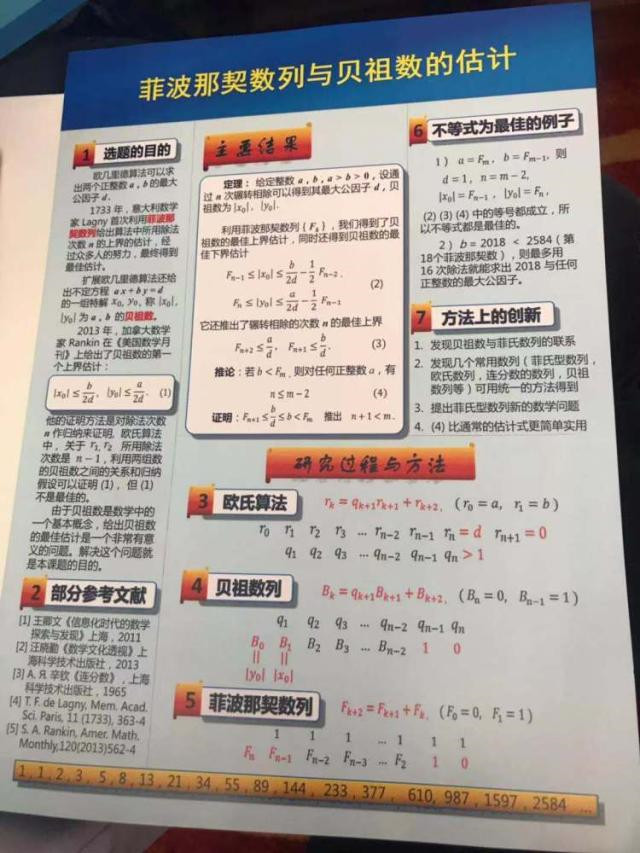 菲波那契数列与贝祖数的估计
1 选题的目的
欧几里德算法可以求
出两个正整数 a , b 的最大
公因子 d.
1733 年，意大利数学
家 Lagny 首次利用菲波那
契数列给出算法中所用除法
次数 n 的上界的估计，经
过众多人的努力，最终得到
最佳估计。
扩展欧几里德算法还给
出不定方程 ax+by=d
的一组特解 x₀, y₀, 称 |x₀|,
|y₀| 为 a , b 的贝祖数。
2013 年，加拿大数学
家 Rankin 在《美国数学月
刊》上给出了贝祖数的第一
个上界估计：
|x₀| ≤ b/2d, |y₀| ≤ a/2d. (1)
他的证明方法是对除法次数
n 作归纳来证明. 欧氏算法
中，关于 r₁, r₂ 所用除法
次数是 n − 1，利用两组数
的贝祖数之间的关系和归纳
假设可以证明 (1)，但 (1)
不是最佳的。
由于贝祖数是数学中的
一个基本概念，给出贝祖数
的最佳估计是一个非常有意
义的问题。解决这个问题就
是本课题的目的。
2 部分参考文献
[1] 王卿文《信息化时代的数学
探索与发现》上海，2011
[2] 汪晓勤《数学文化透视》上
海科学技术出版社，2013
[3] А. Я. 辛钦《连分数》，上海
科学技术出版社，1965
[4] T. F. de Lagny, Mem. Acad.
Sci. Paris, 11 (1733), 363-4
[5] S. A. Rankin, Amer. Math.
Monthly,120(2013)562-4
主要结果
定理：给定整数 a , b , a > b > 0，设通
过 n 次辗转相除可以得到其最大公因子 d，贝
祖数为 |x₀|, |y₀|.
利用菲波那契数列 { Fₖ }，我们得到了贝
祖数的最佳上界估计，同时还得到贝祖数的最
佳下界估计
Fₙ₋₁ ≤ |x₀| ≤ b/2d − 1/2 Fₙ₋₂ ,
(2)
Fₙ ≤ |y₀| ≤ a/2d − 1/2 Fₙ₋₁
它还推出了辗转相除的次数 n 的最佳上界
Fₙ₊₂ ≤ a/d, Fₙ₊₁ ≤ b/d. (3)
推论：若 b < Fₘ , 则对任何正整数 a，有
n ≤ m − 2 (4)
证明：Fₙ₊₁ ≤ b/d ≤ b < Fₘ 推出 n + 1 < m .
6 不等式为最佳的例子
1 ) a = Fₘ , b = Fₘ₋₁, 则
d = 1, n = m − 2,
|x₀| = Fₙ₋₁ , |y₀| = Fₙ ,
(2) (3) (4) 中的等号都成立，所
以不等式都是最佳的。
2 ) b = 2018 < 2584 ( 第
18个菲波那契数 )，则最多用
16 次除法就能求出 2018 与任何
正整数的最大公因子。
7 方法上的创新
1. 发现贝祖数与菲氏数列的联系
2. 发现几个常用数列 ( 菲氏型数列，
欧氏数列，连分数的数列，贝祖
数列等 ) 可用统一的方法得到
3. 提出菲氏型数列新的数学问题
4. (4) 比通常的估计式更简单实用
研究过程与方法
3 欧氏算法 rₖ = qₖ₊₁rₖ₊₁ + rₖ₊₂, ( r₀ = a, r₁ = b )
r₀ r₁ r₂ r₃ … rₙ₋₂ rₙ₋₁ rₙ = d rₙ₊₁ = 0
q₁ q₂ q₃ … qₙ₋₂ qₙ₋₁ qₙ > 1
4 贝祖数列 Bₖ = qₖ₊₁Bₖ₊₁ + Bₖ₊₂, ( Bₙ = 0, Bₙ₋₁ = 1 )
q₁ q₂ q₃ … qₙ₋₂ qₙ₋₁ qₙ
B₀ B₁ B₂ B₃ … Bₙ₋₂ 1 0
|| ||
|y₀| |x₀|
5 菲波那契数列 Fₖ₊₂ = Fₖ₊₁ + Fₖ, ( F₀ = 0, F₁ = 1 )
1 1 1 … 1 1 1
Fₙ Fₙ₋₁ Fₙ₋₂ Fₙ₋₃ … F₂ 1 0
1 , 1 , 2 , 3 , 5 , 8 , 13 , 21 , 34 , 55 , 89 , 144 , 233 , 377 , 610, 987 , 1597 , 2584 ...